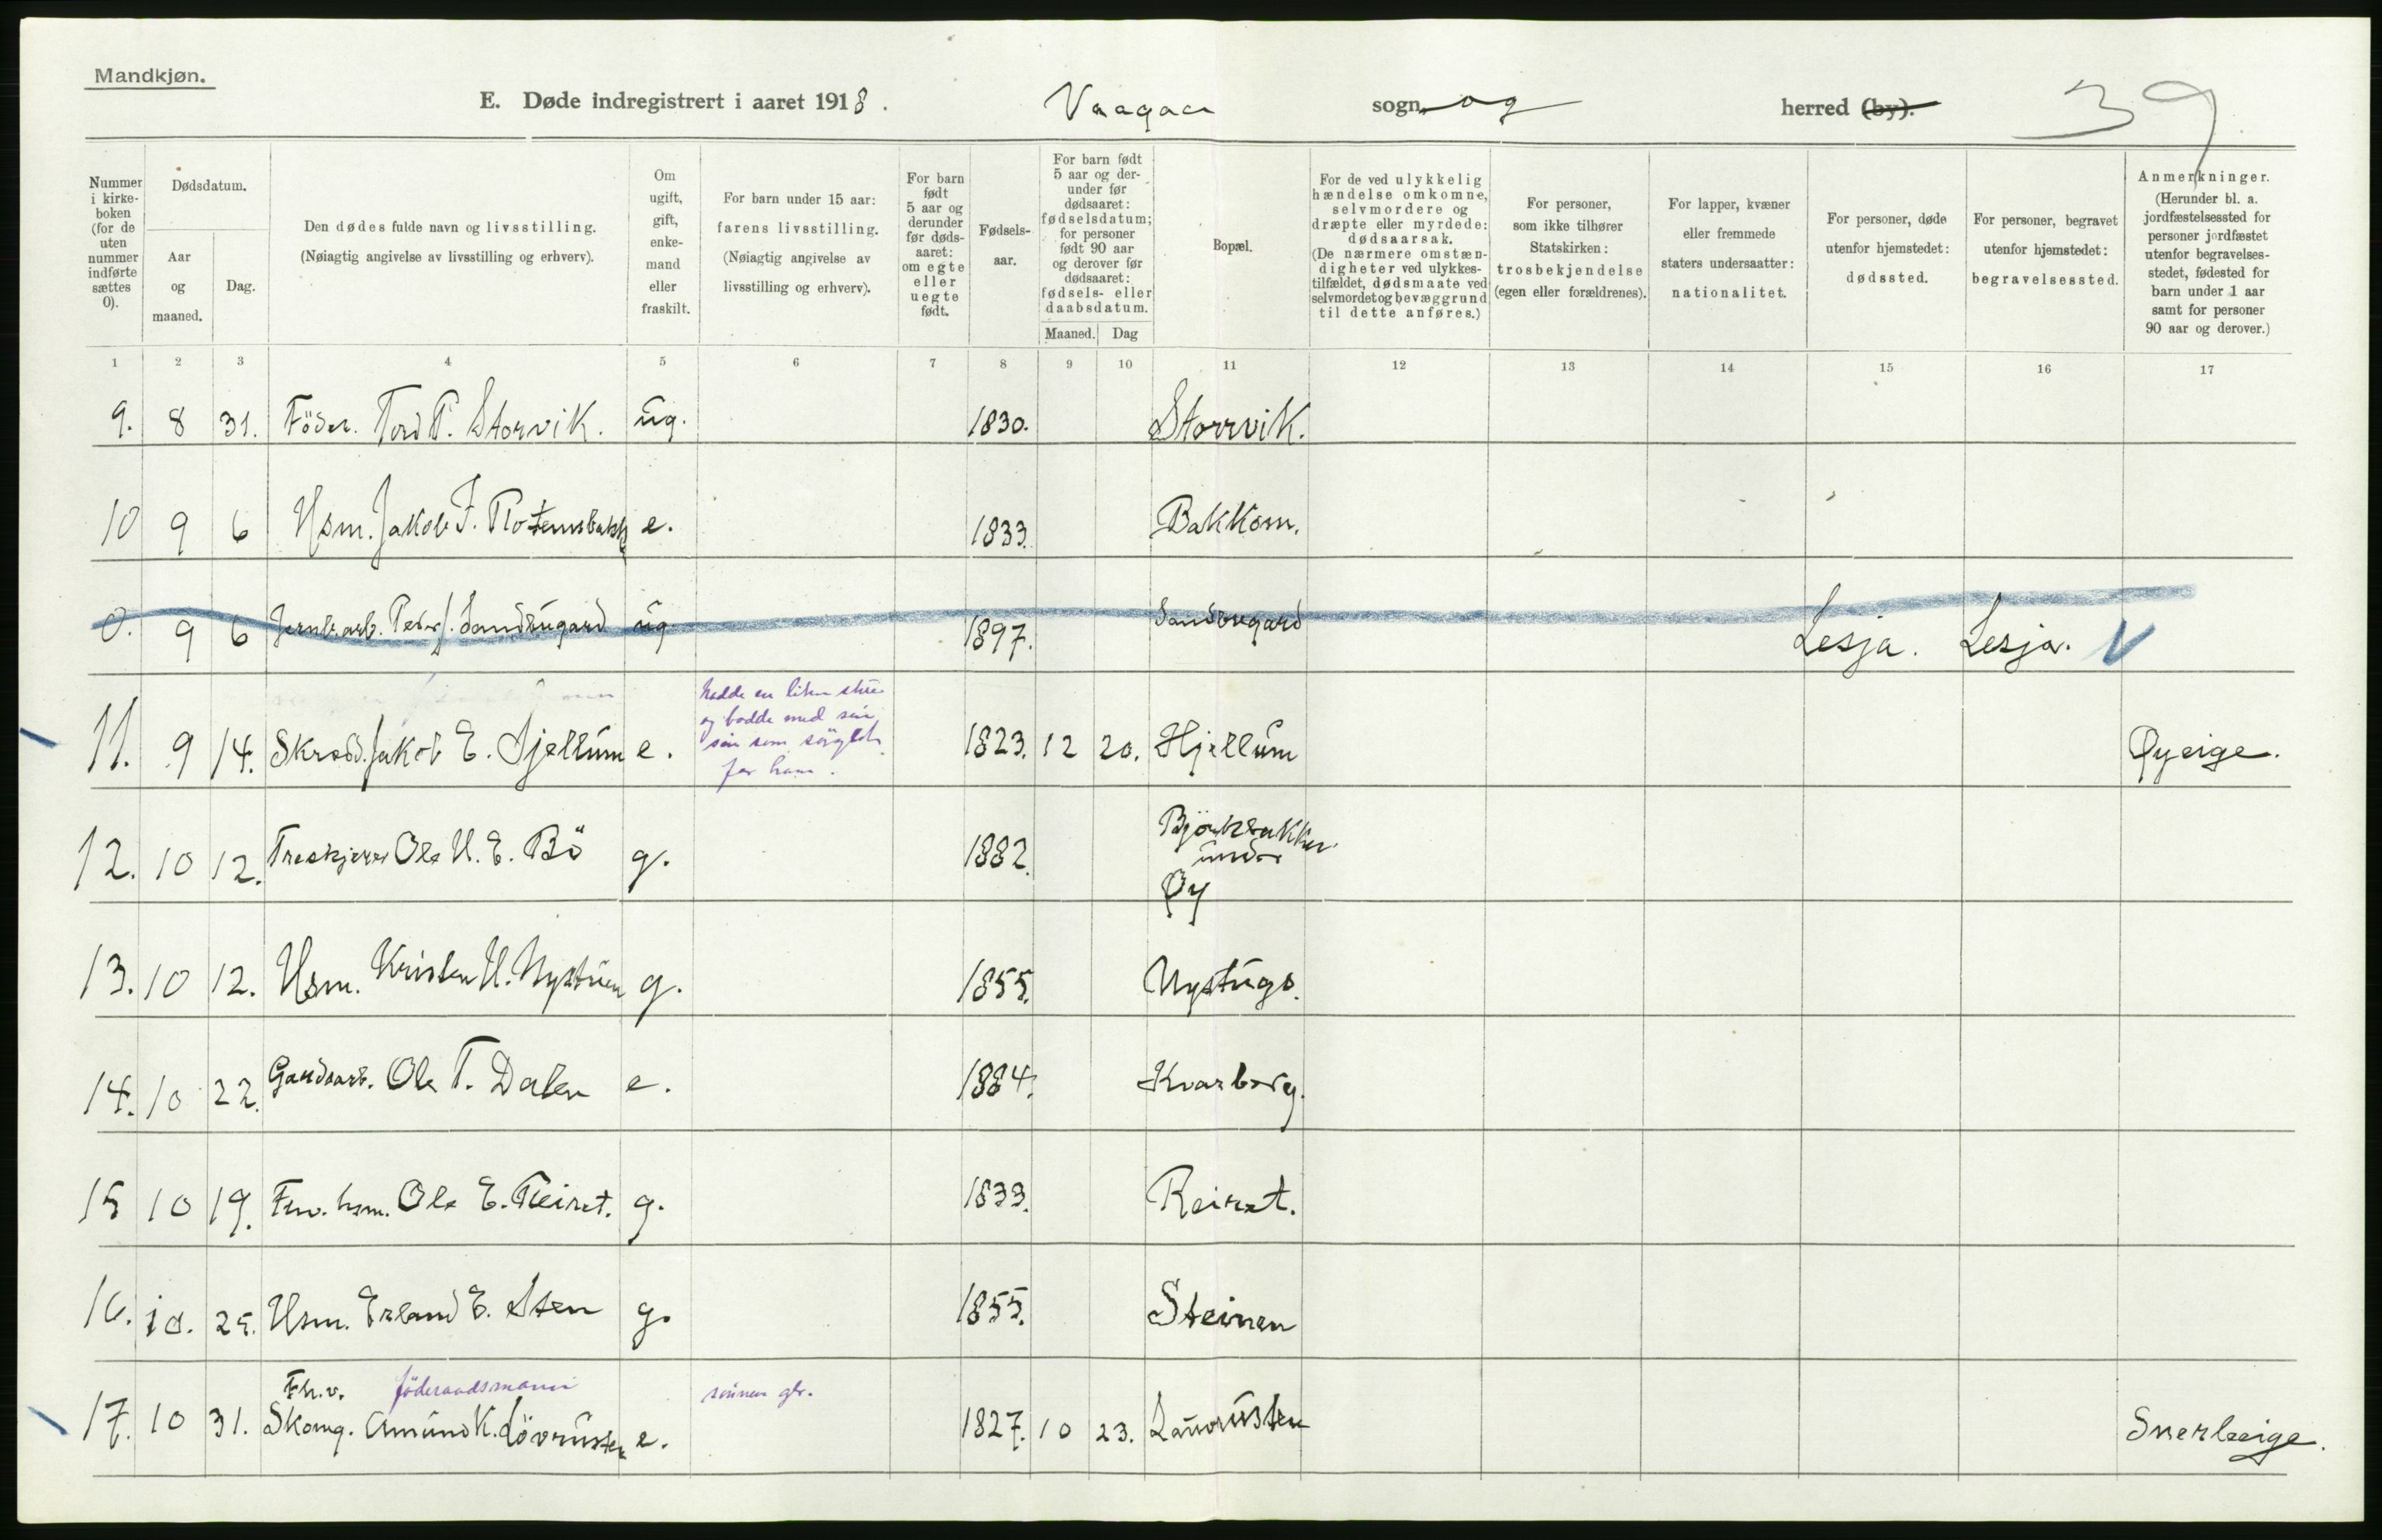 Mandkjøn.
E. Døde indregistrert i aaret 1918. Vaagaa sogn og herred (by). 39
Nummer i kirkeboken (for de uten nummer indførte sættes 0).
Dødsdatum.
Aar og maaned.
Dag.
Den dødes fulde navn og livsstilling.
(Nøiagtig angivelse av livsstilling og erhverv).
Om ugift, gift, enkemand eller fraskilt.
For barn under 15 aar: farens livsstilling. (Nøiagtig angivelse av livsstilling og erhverv).
For barn født 5 aar og derunder før dødsaaret: om egte eller uegte født.
Fødselsaar.
For barn født 5 aar og derunder før dødsaaret: fødselsdatum; for personer født 90 aar og derover før dødsaaret: fødsels- eller daabsdatum.
Maaned. Dag
Bopæl.
For de ved ulykkelig hændelse omkomne, selvmordere og dræpte eller myrdede: dødsaarsak. (De nærmere omstændigheter ved ulykkestilfældet, dødsmaate ved selvmordet og bevæggrund til dette anføres.)
For personer, som ikke tilhører Statskirken: trosbekjendelse (egen eller forældrenes).
For lapper, kvæner eller fremmede staters undersaatter: nationalitet.
For personer, døde utenfor hjemstedet: dødssted.
For personer, begravet utenfor hjemstedet: begravelsessted.
Anmerkninger. (Herunder bl. a. jordfæstelsessted for personer jordfæstet utenfor begravelsesstedet, fødested for barn under 1 aar samt for personer 90 aar og derover.)
1 2 3 4 5 6 7 8 9 10 11 12 13 14 15 16 17
9. 8 31. Föder. Tord P. Storvik. ug. 1830. Storrvik.
10 9 6 Hsm. Jakob J. e. 1833. Bakkom.
0. 9 6 Jernb.arb. Peder J. Sandbugard ug. 1897. Sandbugard Lesja. Lesja. V
hadde en liten stue
og bodde med sin
søn som sørget
for ham.
11. 9 14. Skrædd. Jakob E. Hjellum e. 1823. 12 20. Hjellum Øyeige.
12. 10 12. Treskjerer Ole H. E. Bö g. 1882. Björkbakken under Øy
13. 10 12. Hsm. Kristen H. Nystuen g. 1855. Nystugo.
14. 10 22. Gardsarb. Ole T. Dalen e. 1884. Kvarberg.
15 10 19. Frv. hsm. Ole E. Reiret. g. 1833. Reiret.
16. 10. 25. Hsm. Erland E. Sten g. 1855. Steinen
Fh.v. föderaadsmann sönnen gbr.
17. 10 31. Skomg. Amund K. Lövrusten e. 1827. 10 23. Lauvrusten